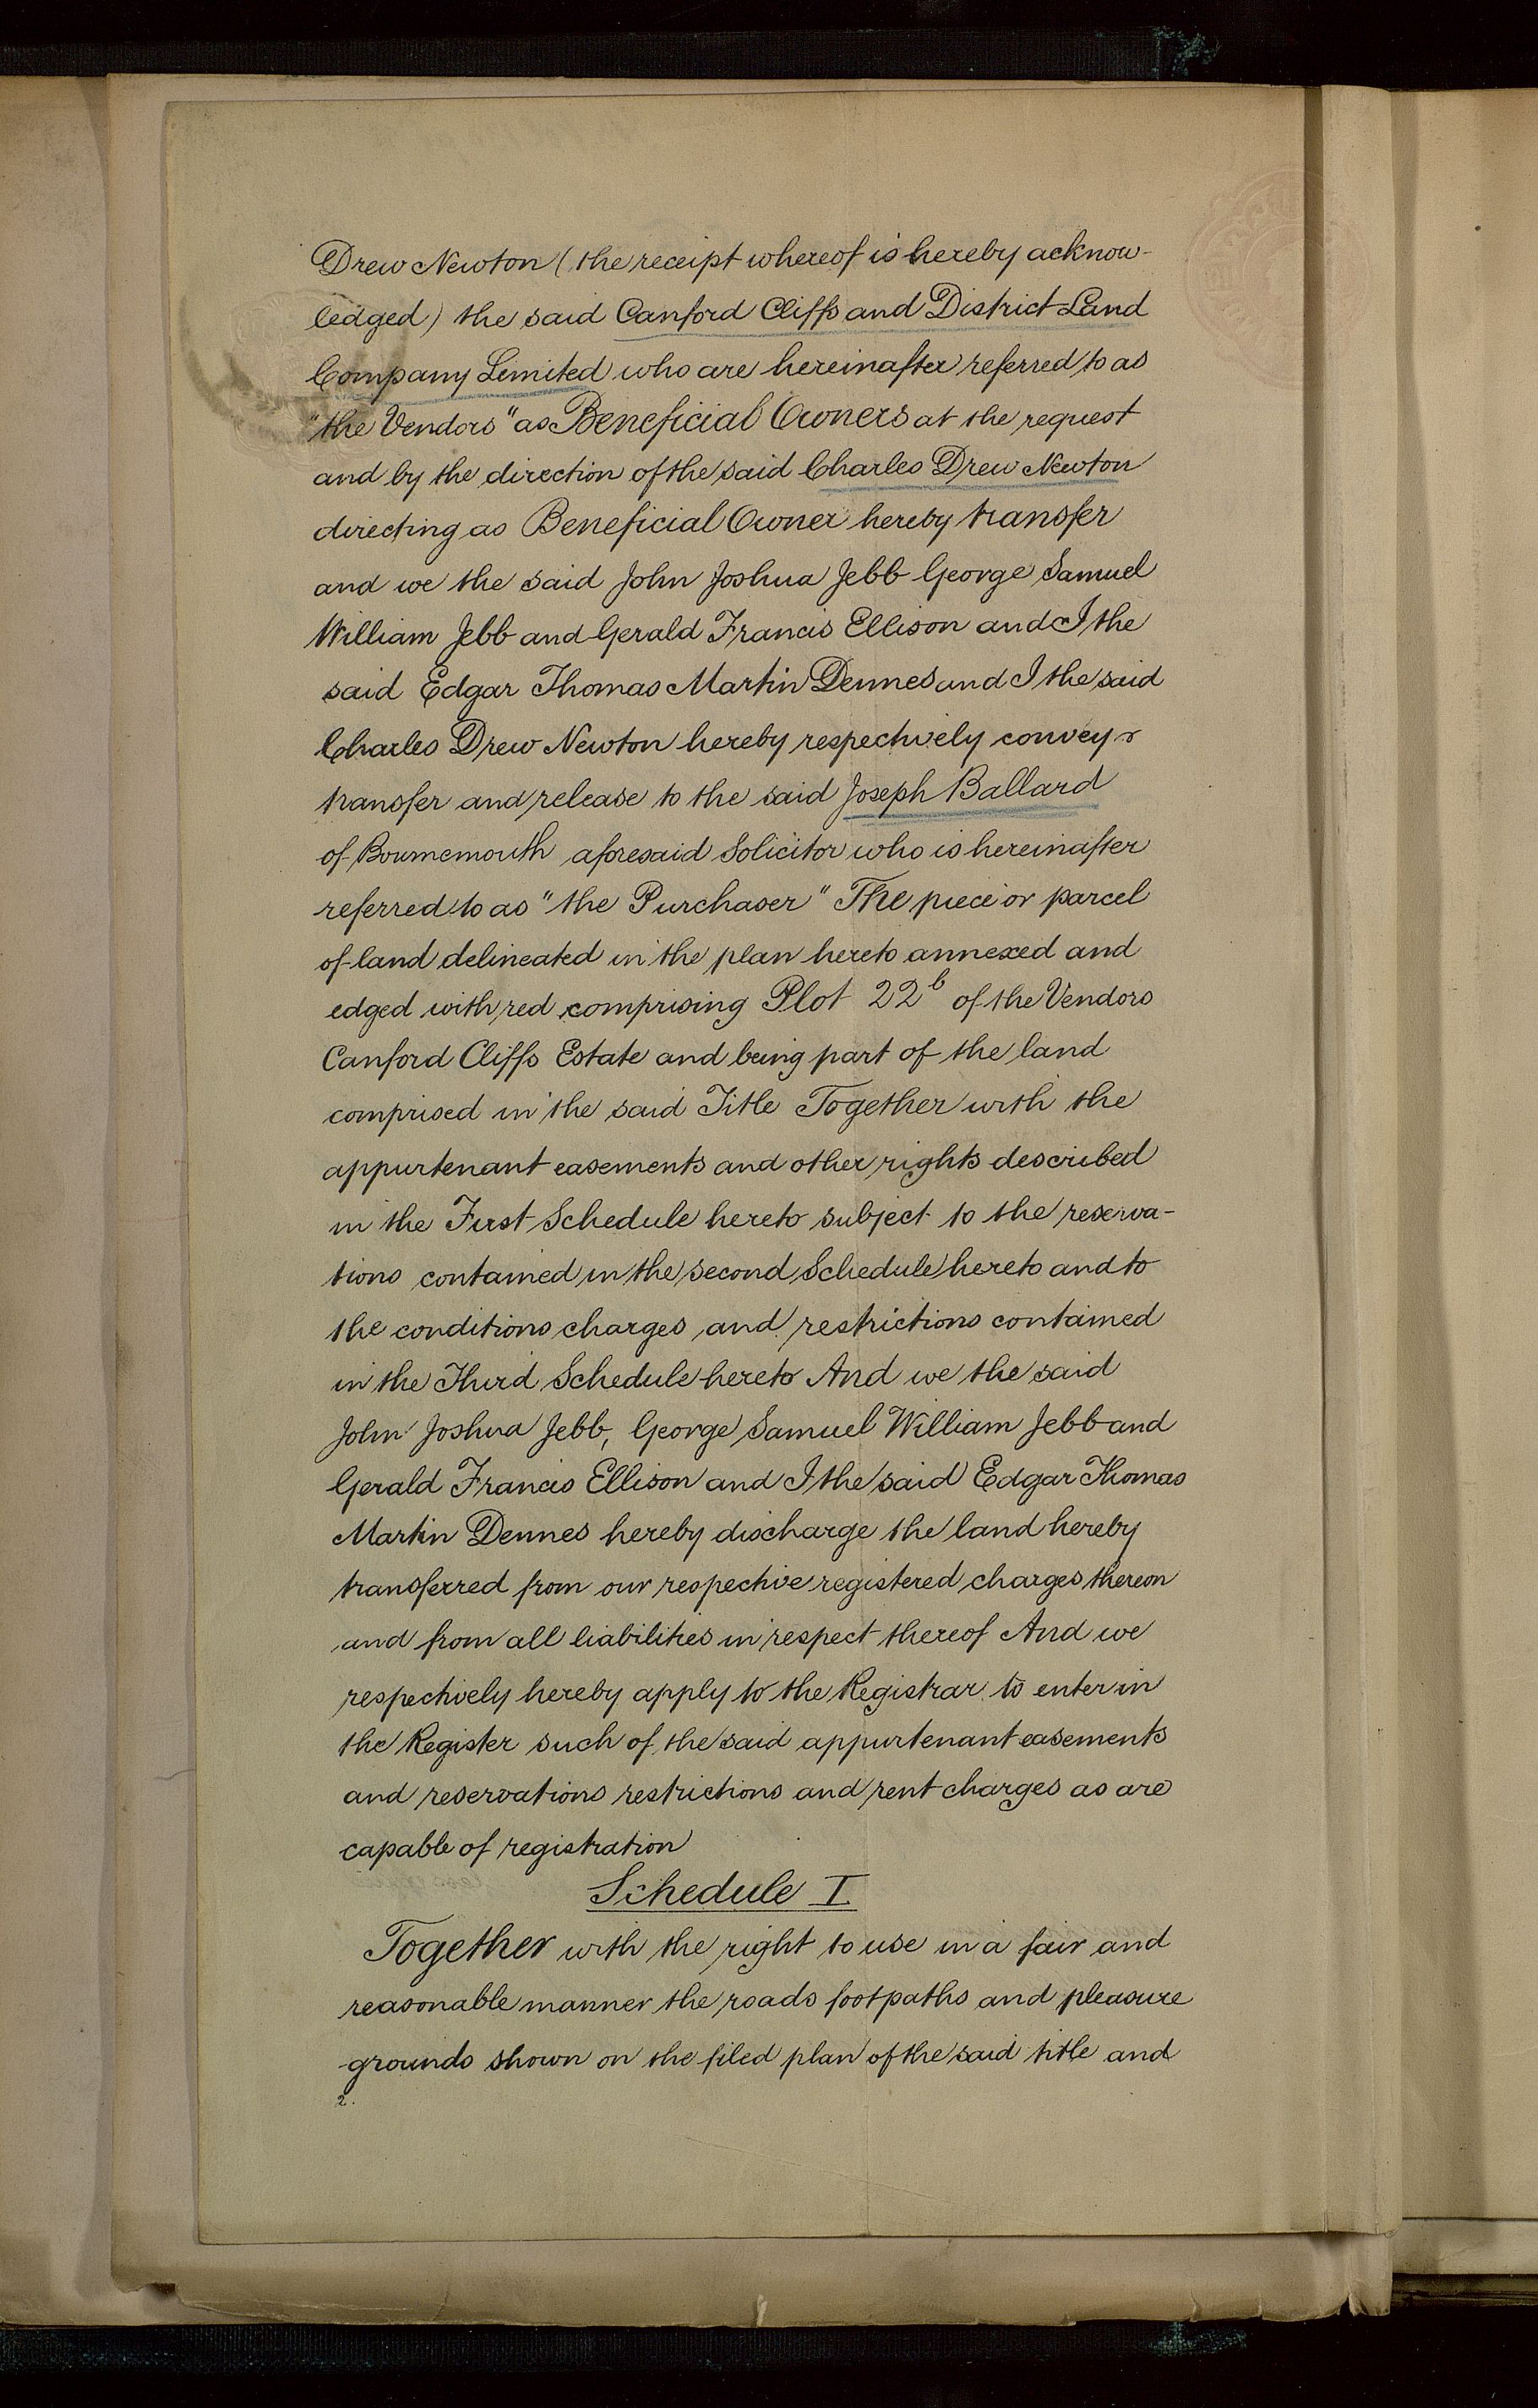 Drew Newton (the receipt whereof is hereby acknow-
ledged) the said Canford Cliffs and District Land
Company Limited who are hereinafter referred to as
"the Vendors" as Beneficial Owners at the request
and by the direction of the said Charles Drew Newton
directing as Beneficial Owner hereby transfer
and we the said John Joshua Jebb George Samuel
William Jebb and Gerald Francis Ellison and I the
said Edgar Thomas Martin Dennes and I the said
Charles Drew Newton hereby respectively convey &
transfer and release to the said Joseph Ballard
of Bournemouth aforesaid Solicitor who is hereinafter
referred to as "the Purchaser" The piece or parcel
of land delineated in the plan hereto annexed and
edged with red comprising Plot 22b of the Vendors
Canford Cliffs Estate and being part of the land
comprised in the said Title Together with the
appurtenant easements and other rights described
in the First Schedule hereto subject to the reserva-
tions contained in the second Schedule hereto and to
the conditions charges and restrictions contained
in the Third Schedule hereto And we the said
John Joshua Jebb, George Samuel William Jebb and
Gerald Francis Ellison and I the said Edgar Thomas
Martin Dennes hereby discharge the land hereby
transferred from our respective registered charges thereon
and from all liabilities in respect thereof And we
respectively hereby apply to the Registrar to enter in
the Register such of the said appurtenant easements
and reservations restrictions and rent charges as are
capable of registration
Schedule I
Together with the right to use in a fair and
reasonable manner the roads footpaths and pleasure
grounds shown on the filed plan of the said title and
2.